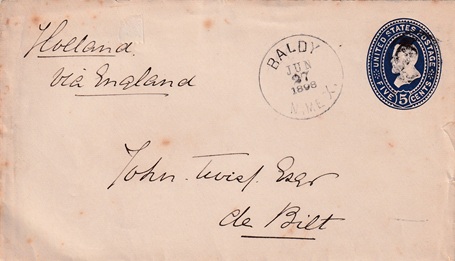 Holland.
via England
BALDY
JUN
27
1898
N. MEX.
UNITED STATES POSTAGE
FIVE 5 CENTS
John Twisf. Esqr
de Bilt